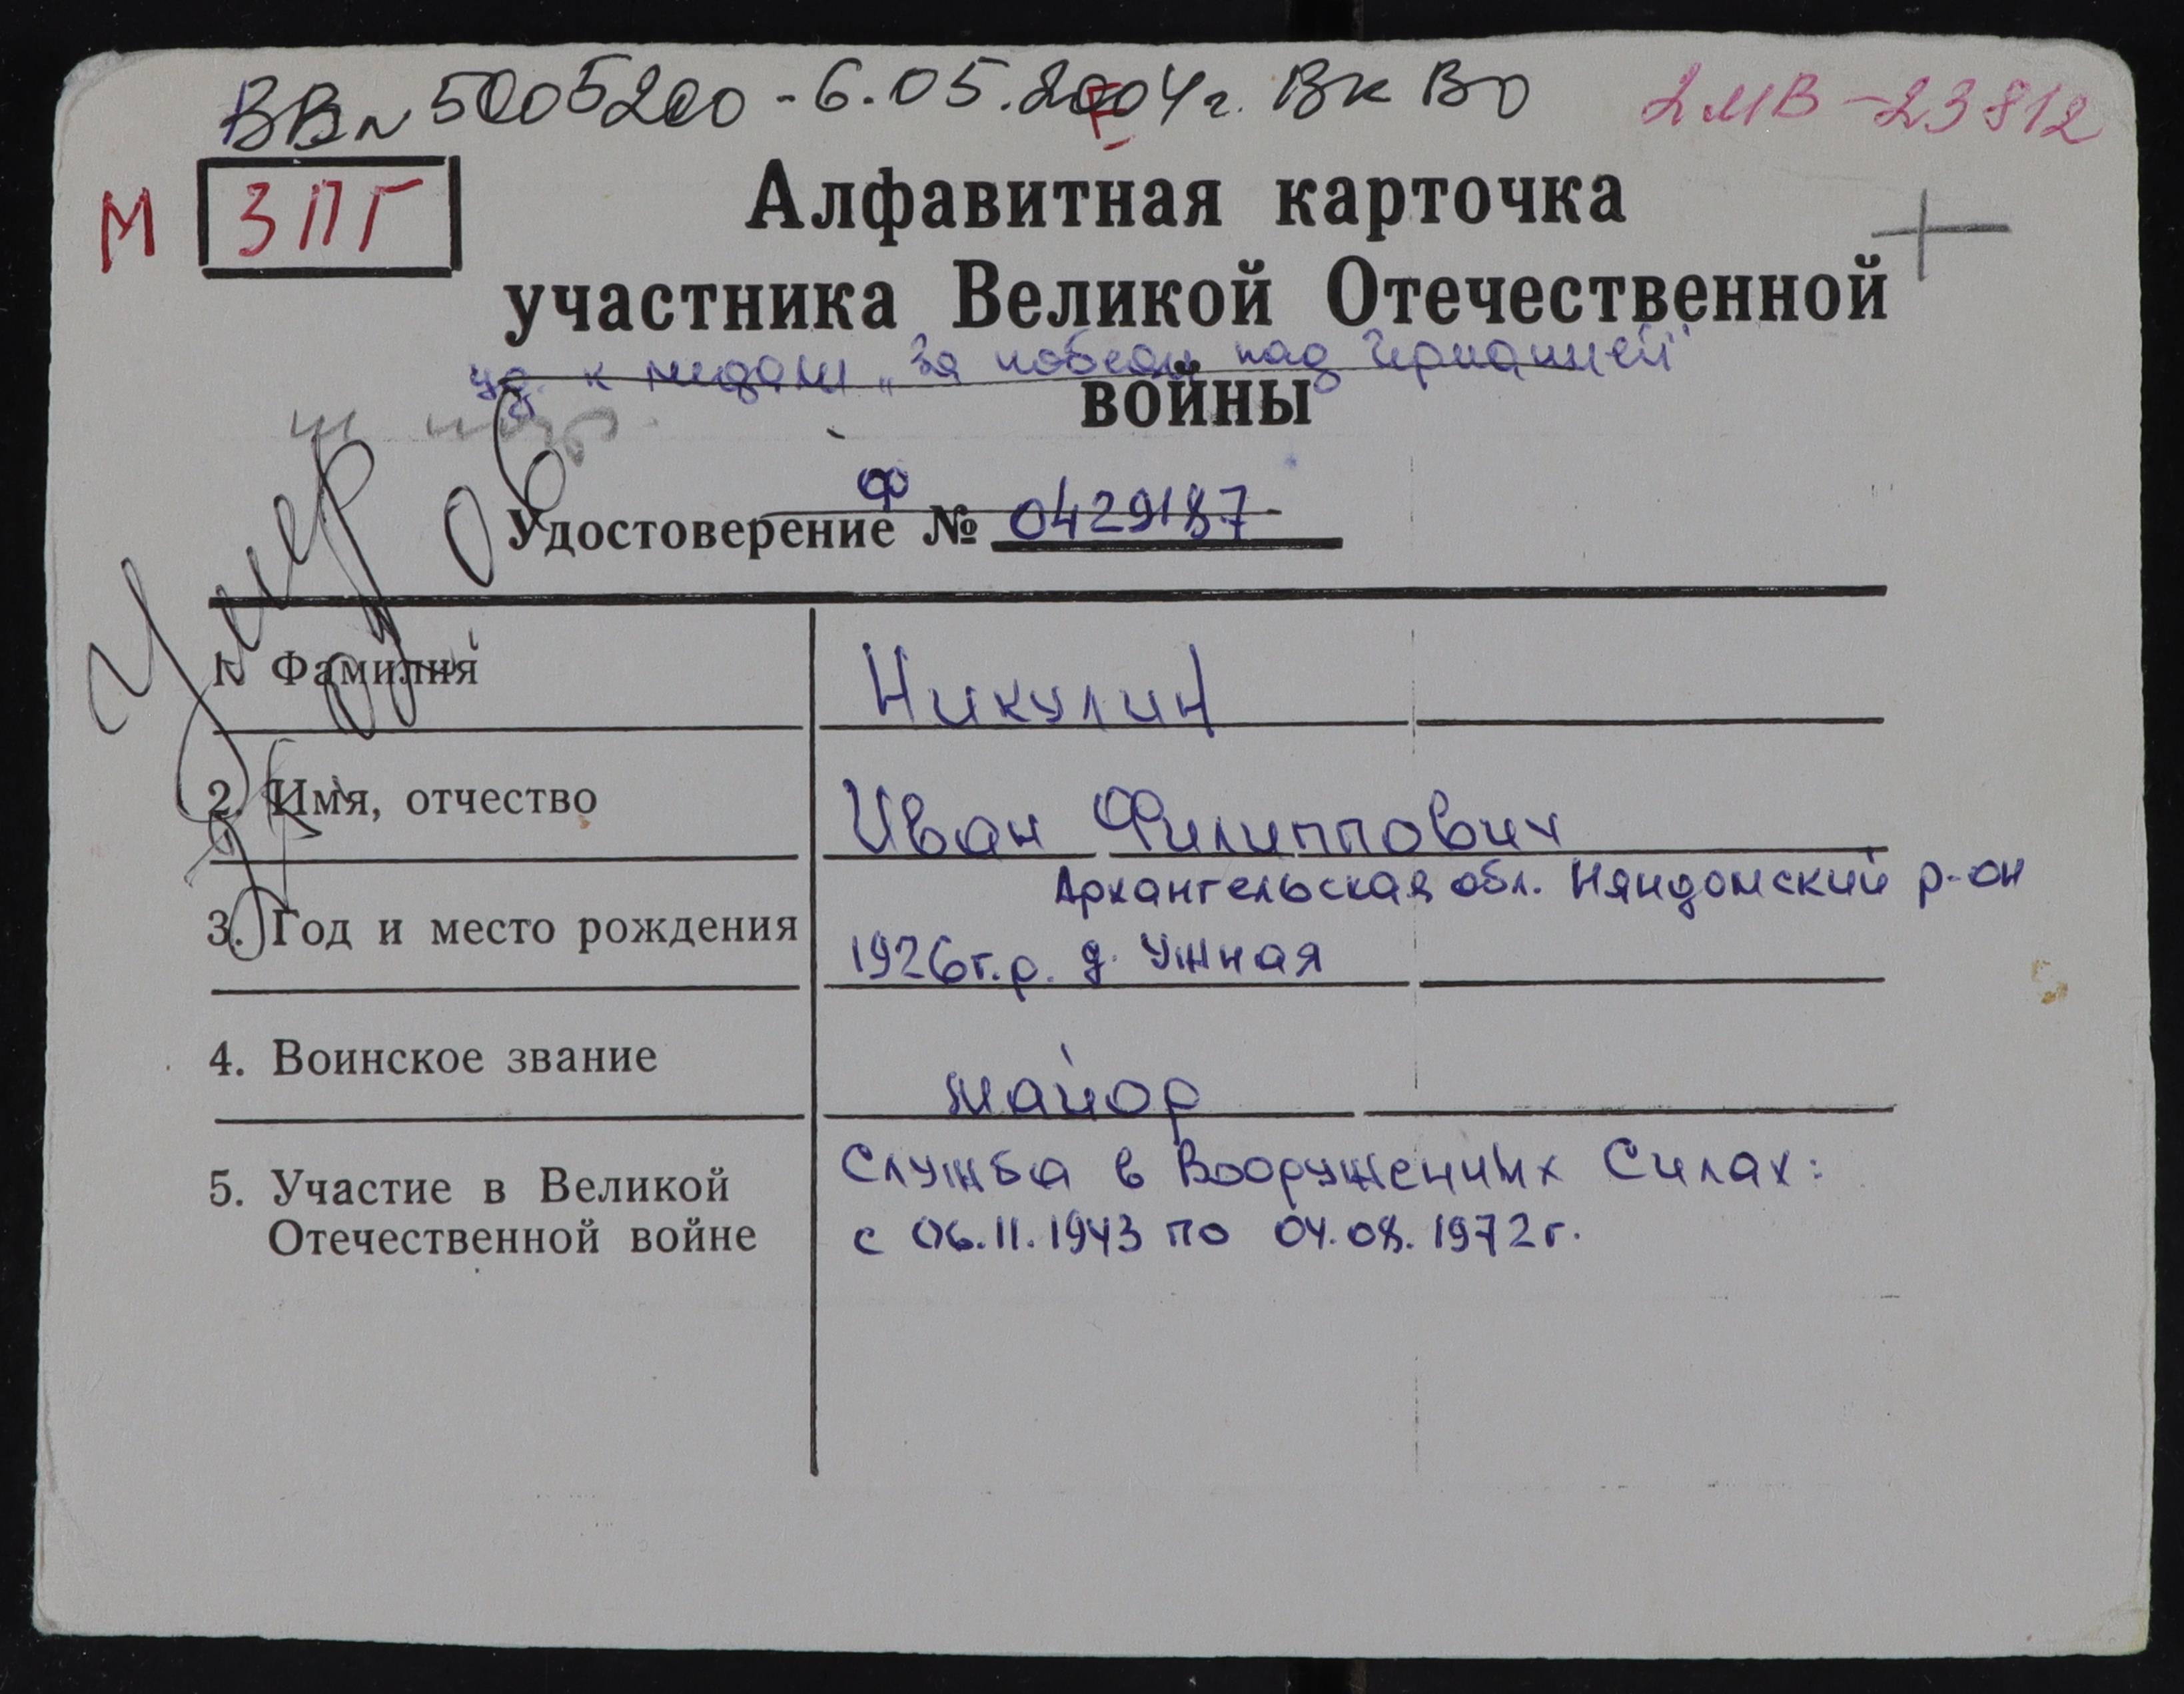 ВВ № 5005200 - 6.05.2004г. ВК ВО
2МВ - 23812
М ЗПГ
Алфавитная карточка
участника Великой Отечественной
уд. к медали „За победу над Германией"
войны
Ф
Удостоверение № 0429187
Умер
1. Фамилия Никулин
2. Имя, отчество Иван Филиппович
Архангельская обл. Няндомский р-он
3. Год и место рождения 1926г.р. д. Ужная
4. Воинское звание майор
5. Участие в Великой Служба в Вооруженных Силах:
Отечественной войне с 06.11.1943 по 04.08.1972г.